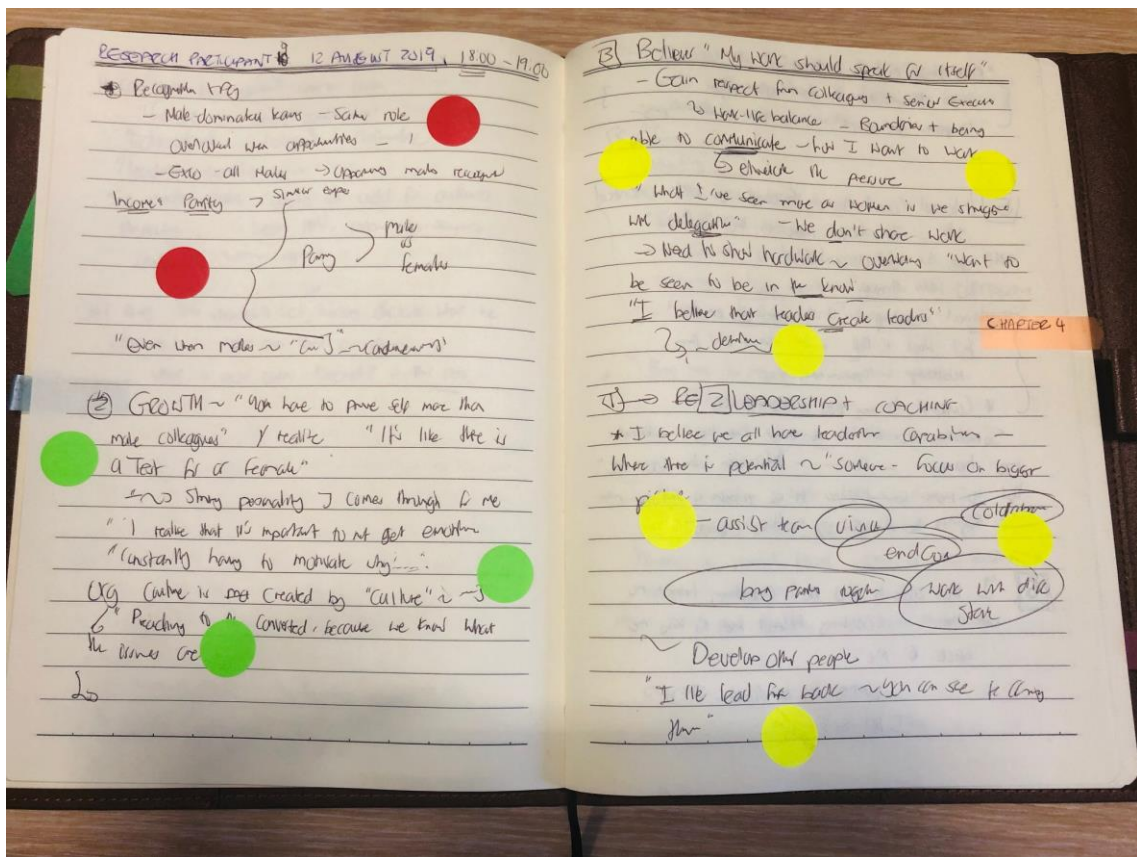 RESEARCH PARTICIPANT 9 12 AUGUST 2019, 18.00 - 19.00
- Male dominated teams - Same role
overlooked when opportunities -
- Exco - all Males → males
Income Parity → Similar
Parity male
vs
females
"even when males ~
② GROWTH ~ "You have to prove self more than
male colleagues" realise "It's like there is
a Test for a Female"
Strong personality comes through for me
"I realise that it's important to not get emotion
"Constantly having to motivate why ....
Org Culture is created by "Culture" ~
"Preaching to converted, because we know what
the issues are
3) Believes "My work should speak for itself"
- Gain respect from colleagues + senior Execs
~ Work-life balance - Boundaries + being
able to communicate - how I want to work
the
"What I've seen more as women is we struggle
with delegation" - We don't share work
→ Need to show hardwork ~ "Want to
be seen to be in the know
"I believe that leaders create leaders"
→ RE 2 LEADERSHIP + COACHING
* I believe we all have leadership -
Where there is potential ~ "Someone - Focus on bigger
- assist team
end Goal
work with
~ Develop other people
"I lead from back ~ you can see
CHAPTER 4